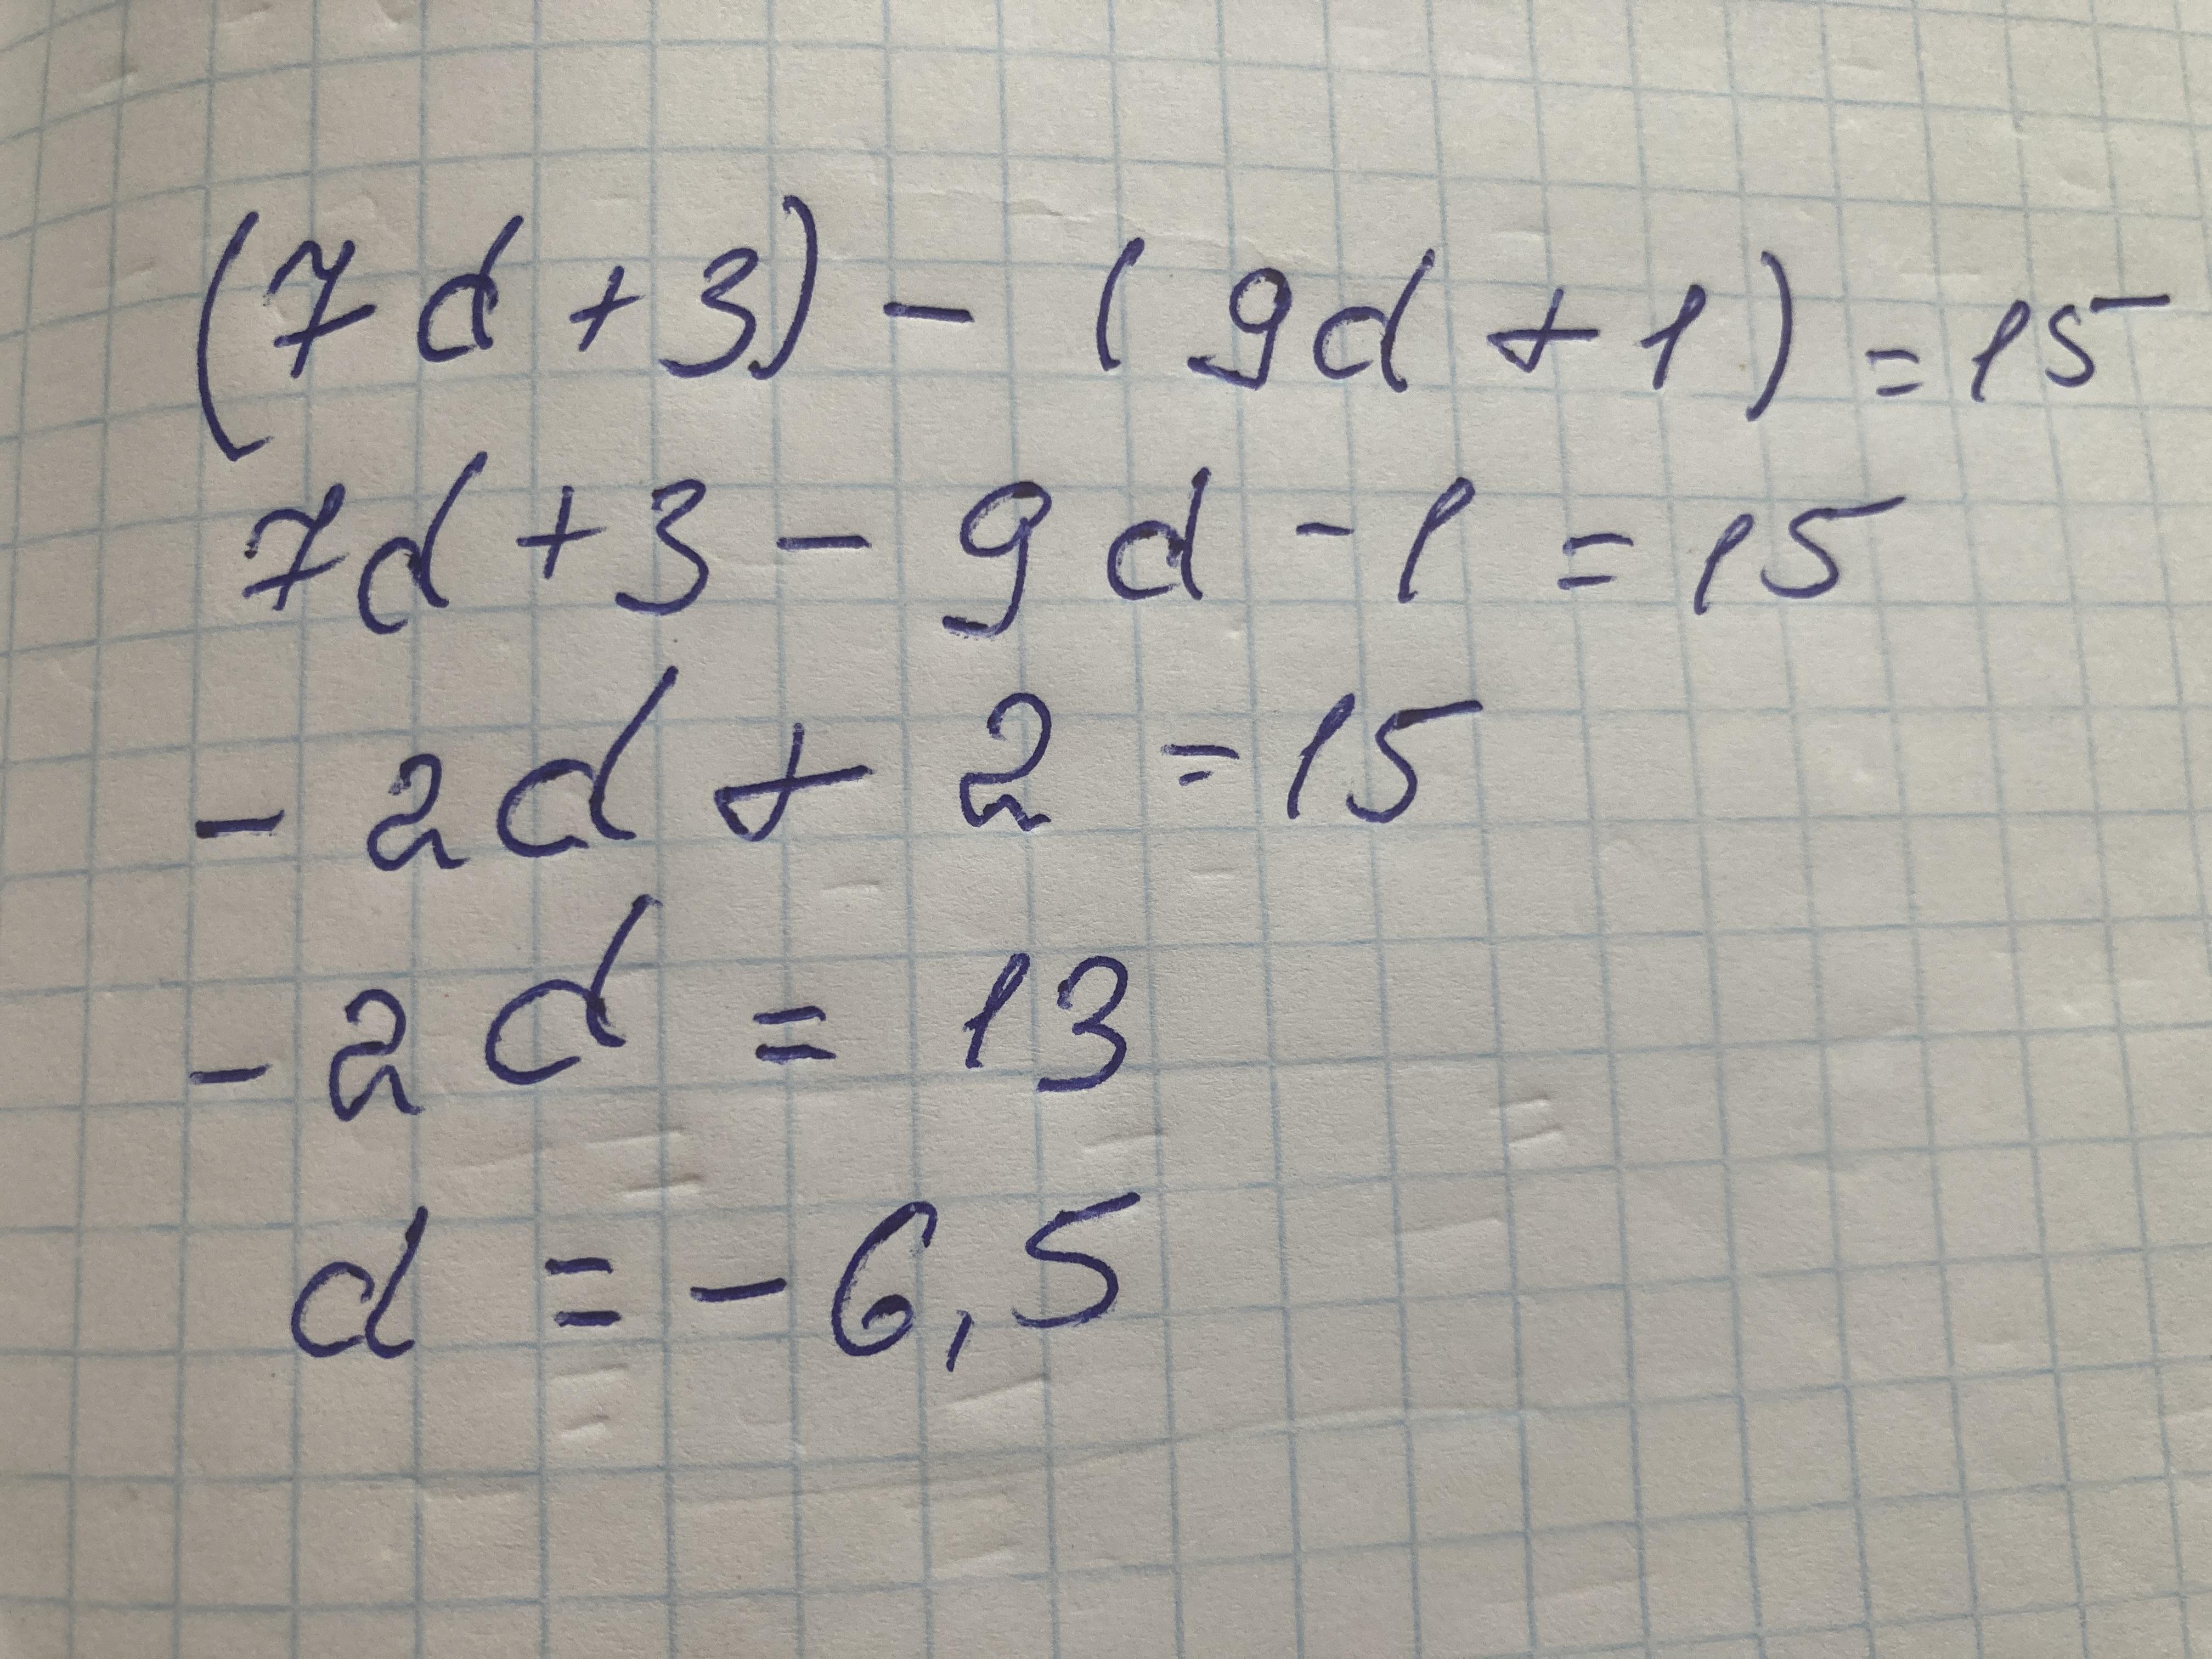 (7d+3) - (9d+1) = 15
7d+3 - 9d - 1 = 15
- 2d + 2 = 15
- 2d = 13
d = - 6,5